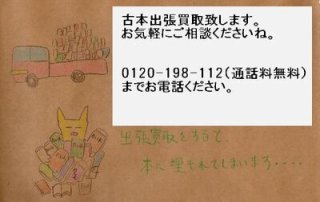 古本出張買取致します。
お気軽にご相談くださいね。
0120-198-112(通話料無料)
までお電話ください。
出張買取をすると
本に埋もれてしまいます・・・・